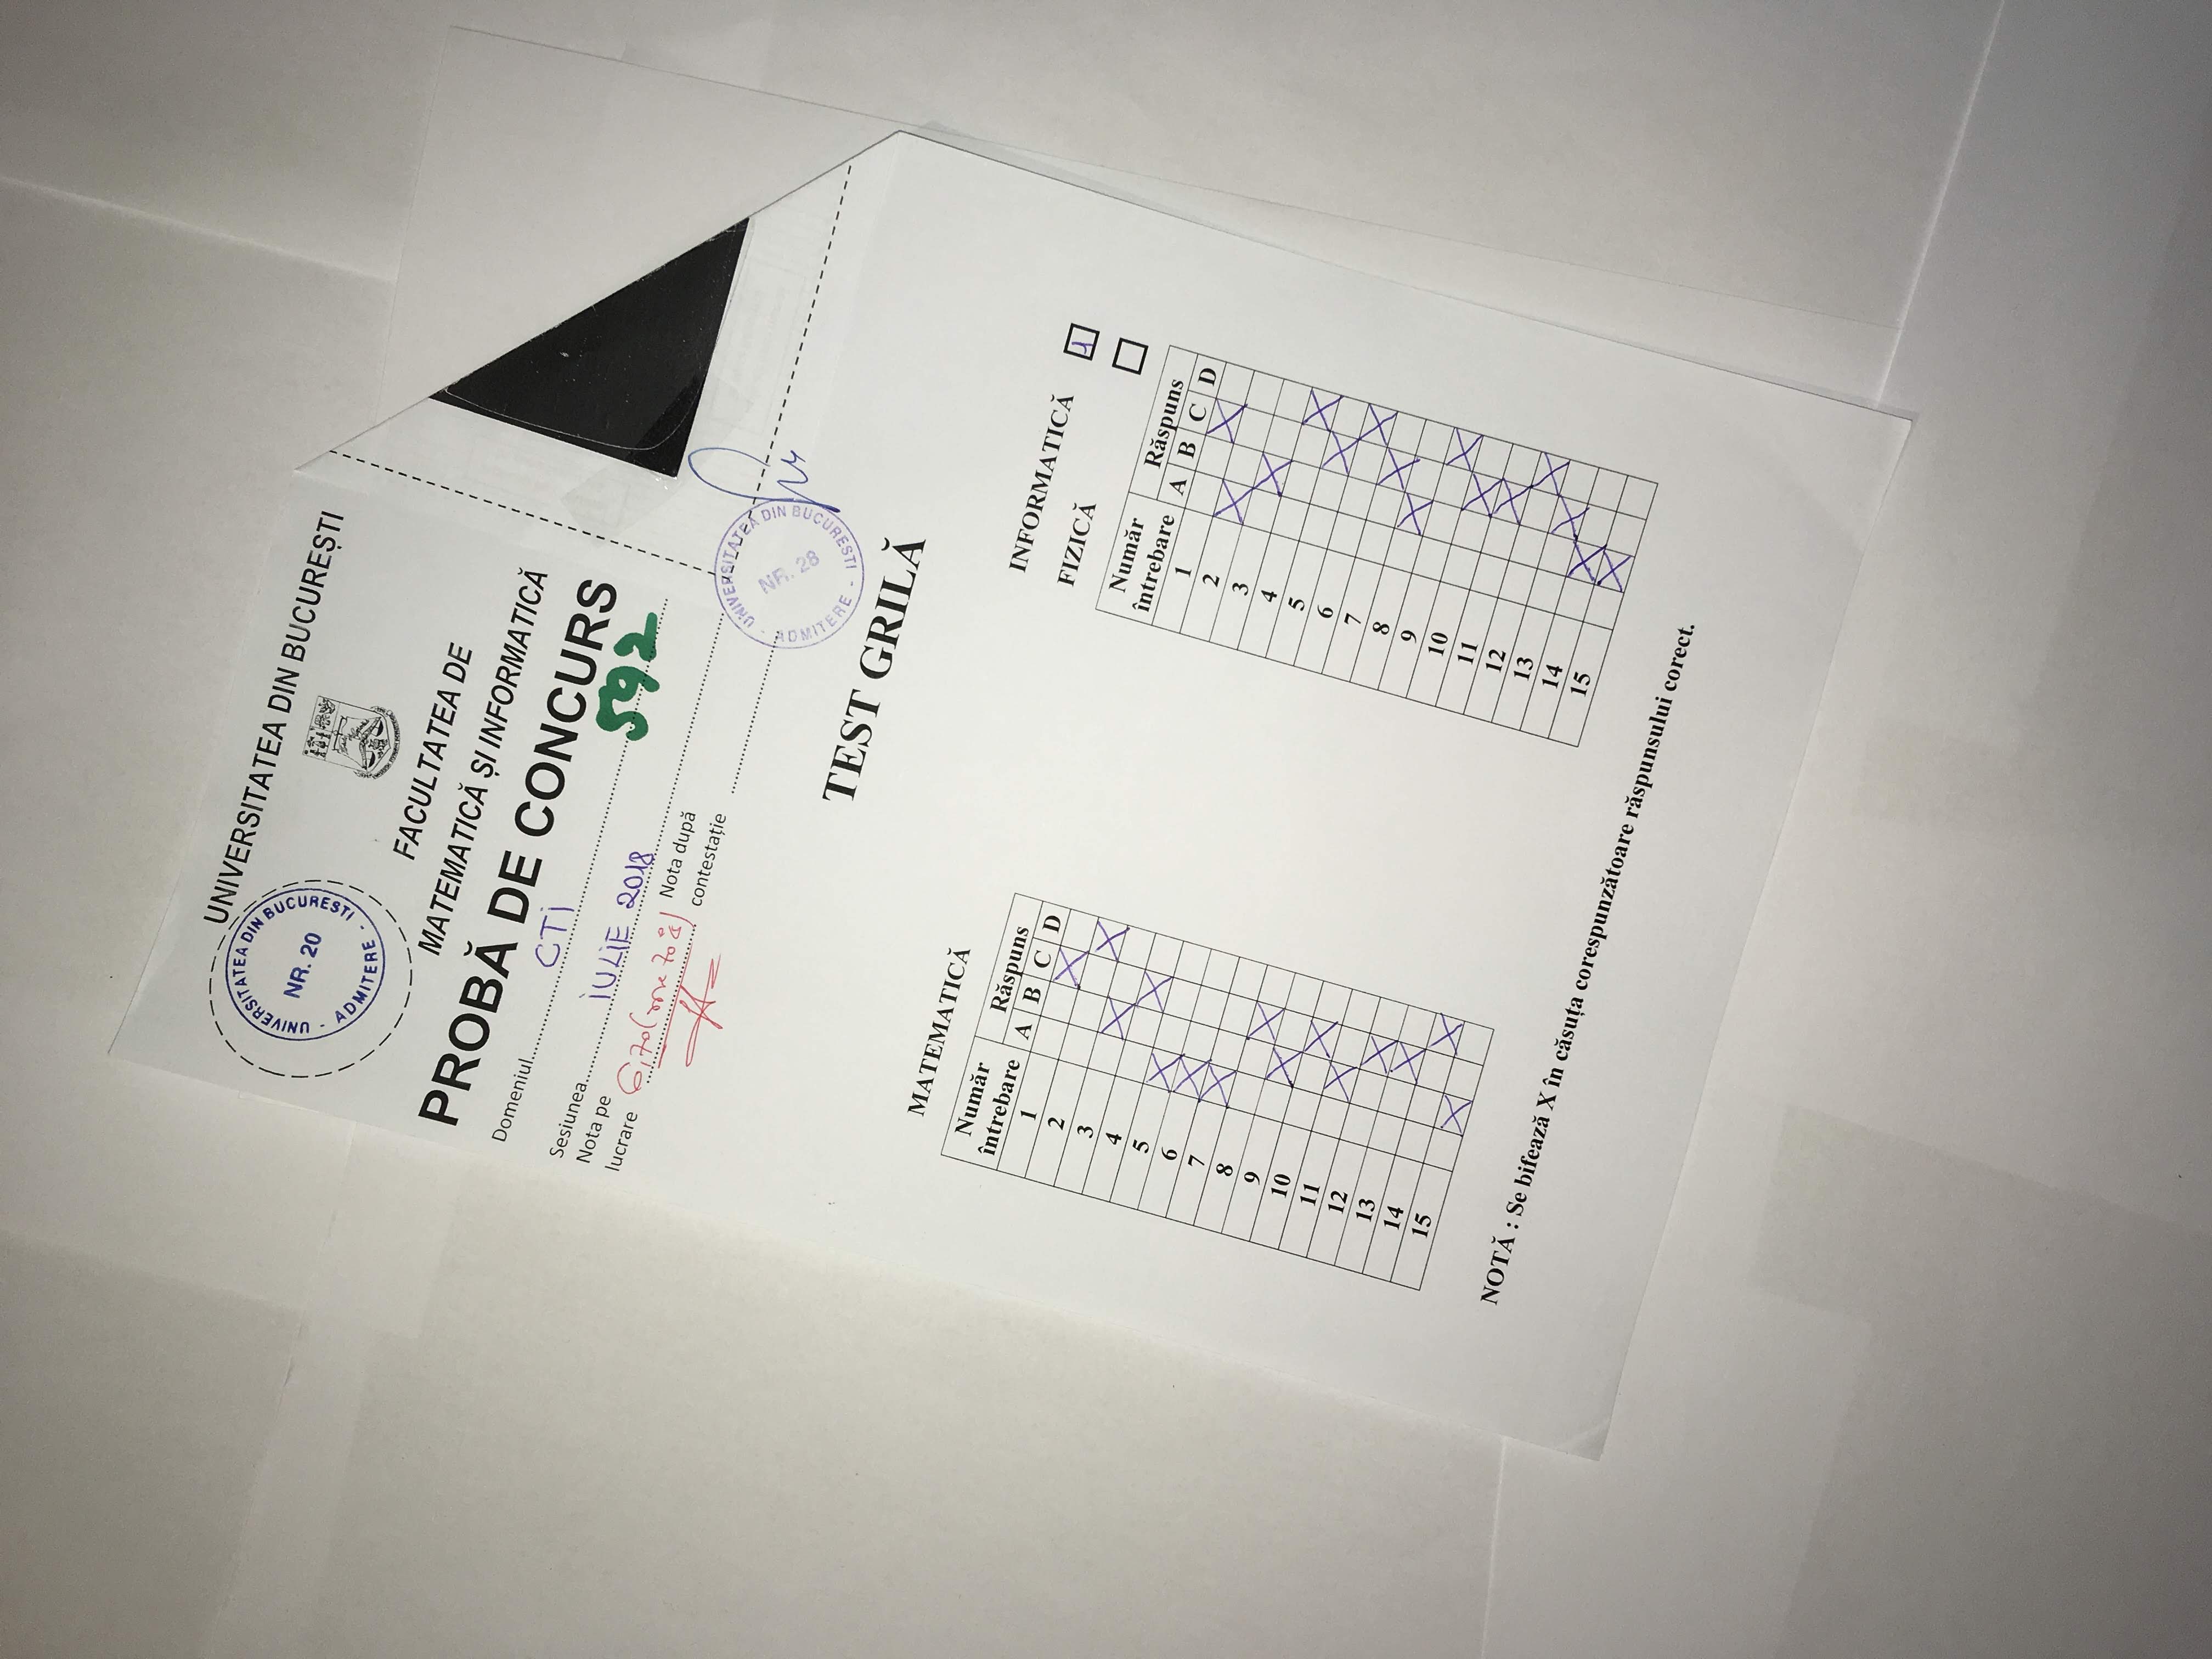 UNIVERSITATEA DIN BUCUREȘTI
UNIVERSITATEA DIN BUCURESTI - ADMITERE -
NR. 20
FACULTATEA DE
MATEMATICĂ ȘI INFORMATICĂ
PROBĂ DE CONCURS
Domeniul CTI
592
Sesiunea IULIE 2018
Nota pe lucrare 6,70
Nota după contestație
UNIVERSITATEA DIN BUCURESTI - ADMITERE -
NR. 28
TEST GRILĂ
MATEMATICĂ
Număr întrebare Răspuns
A B C D
1 X
2 X
3 X
4 X
5 X
6 X
7 X
8 X
9 X
10 X
11 X
12 X
13 X
14 X
15 X
INFORMATICĂ
FIZICĂ
Număr întrebare Răspuns
A B C D
1 X
2 X
3 X
4 X
5 X
6 X
7 X
8 X
9 X
10 X
11 X
12 X
13 X
14 X
15 X
NOTĂ : Se bifează X în căsuța corespunzătoare răspunsului corect.